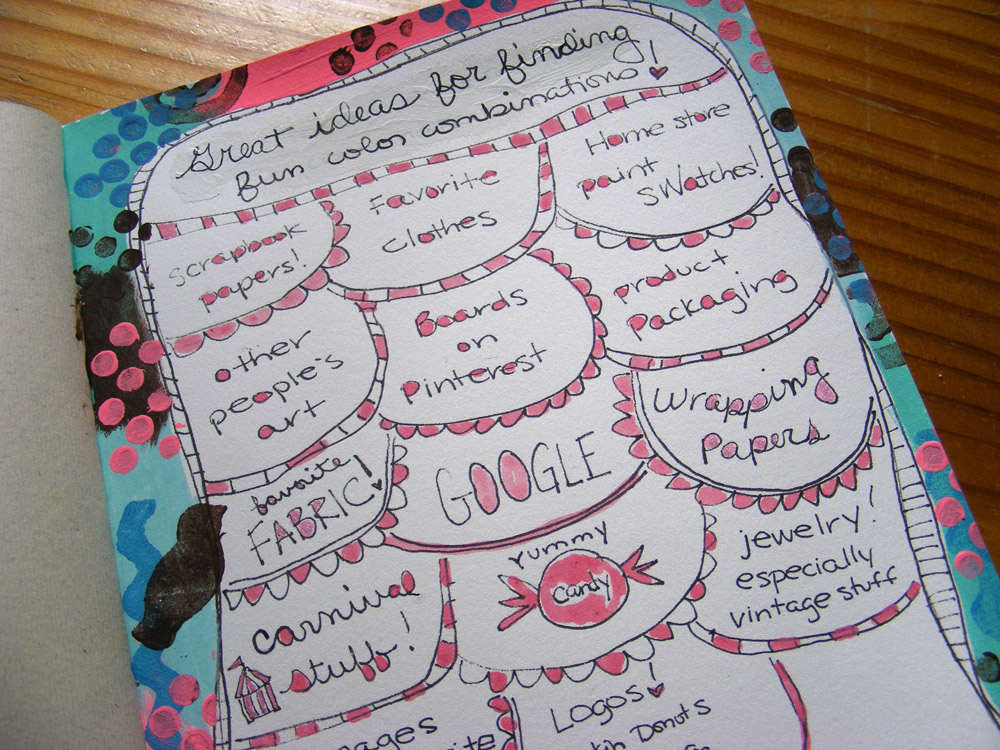 Great ideas for finding
fun color combinations!
Scrapbook
papers!
Favorite
clothes
Home store
paint
swatches!
other
people's
art
Boards
on
Pinterest
product
Packaging
favorite
FABRIC!
GOOGLE
Wrapping
Papers
carnival
stuff!
Yummy
Candy
jewelry!
especially
vintage stuff
Logos!
Donuts